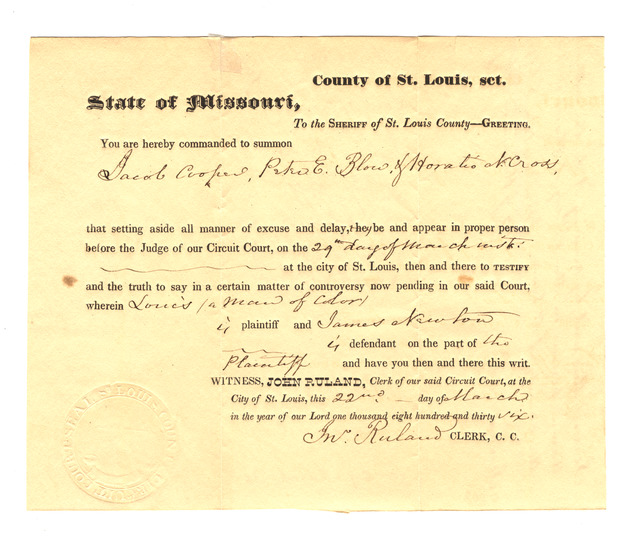 County of St. Louis, sct.
State of Missouri,
To the SHERIFF of St. Louis County—GREETING.
You are hereby commanded to summon
Jacob Cooper, Peter E. Blow, & Horatio N Cross,
that setting aside all manner of excuse and delay, they be and appear in proper person
before the Judge of our Circuit Court, on the 29th day of March inst.
at the city of St. Louis, then and there to TESTIFY
and the truth to say in a certain matter of controversy now pending in our said Court,
wherein Louis (a man of color)
is plaintiff and James Newton
is defendant on the part of the
Plaintiff and have you then and there this writ.
WITNESS, JOHN RULAND, Clerk of our said Circuit Court, at the
City of St. Louis, this 22nd day of March
in the year of our Lord one thousand eight hundred and thirty six.
Jno. Ruland CLERK, C. C.